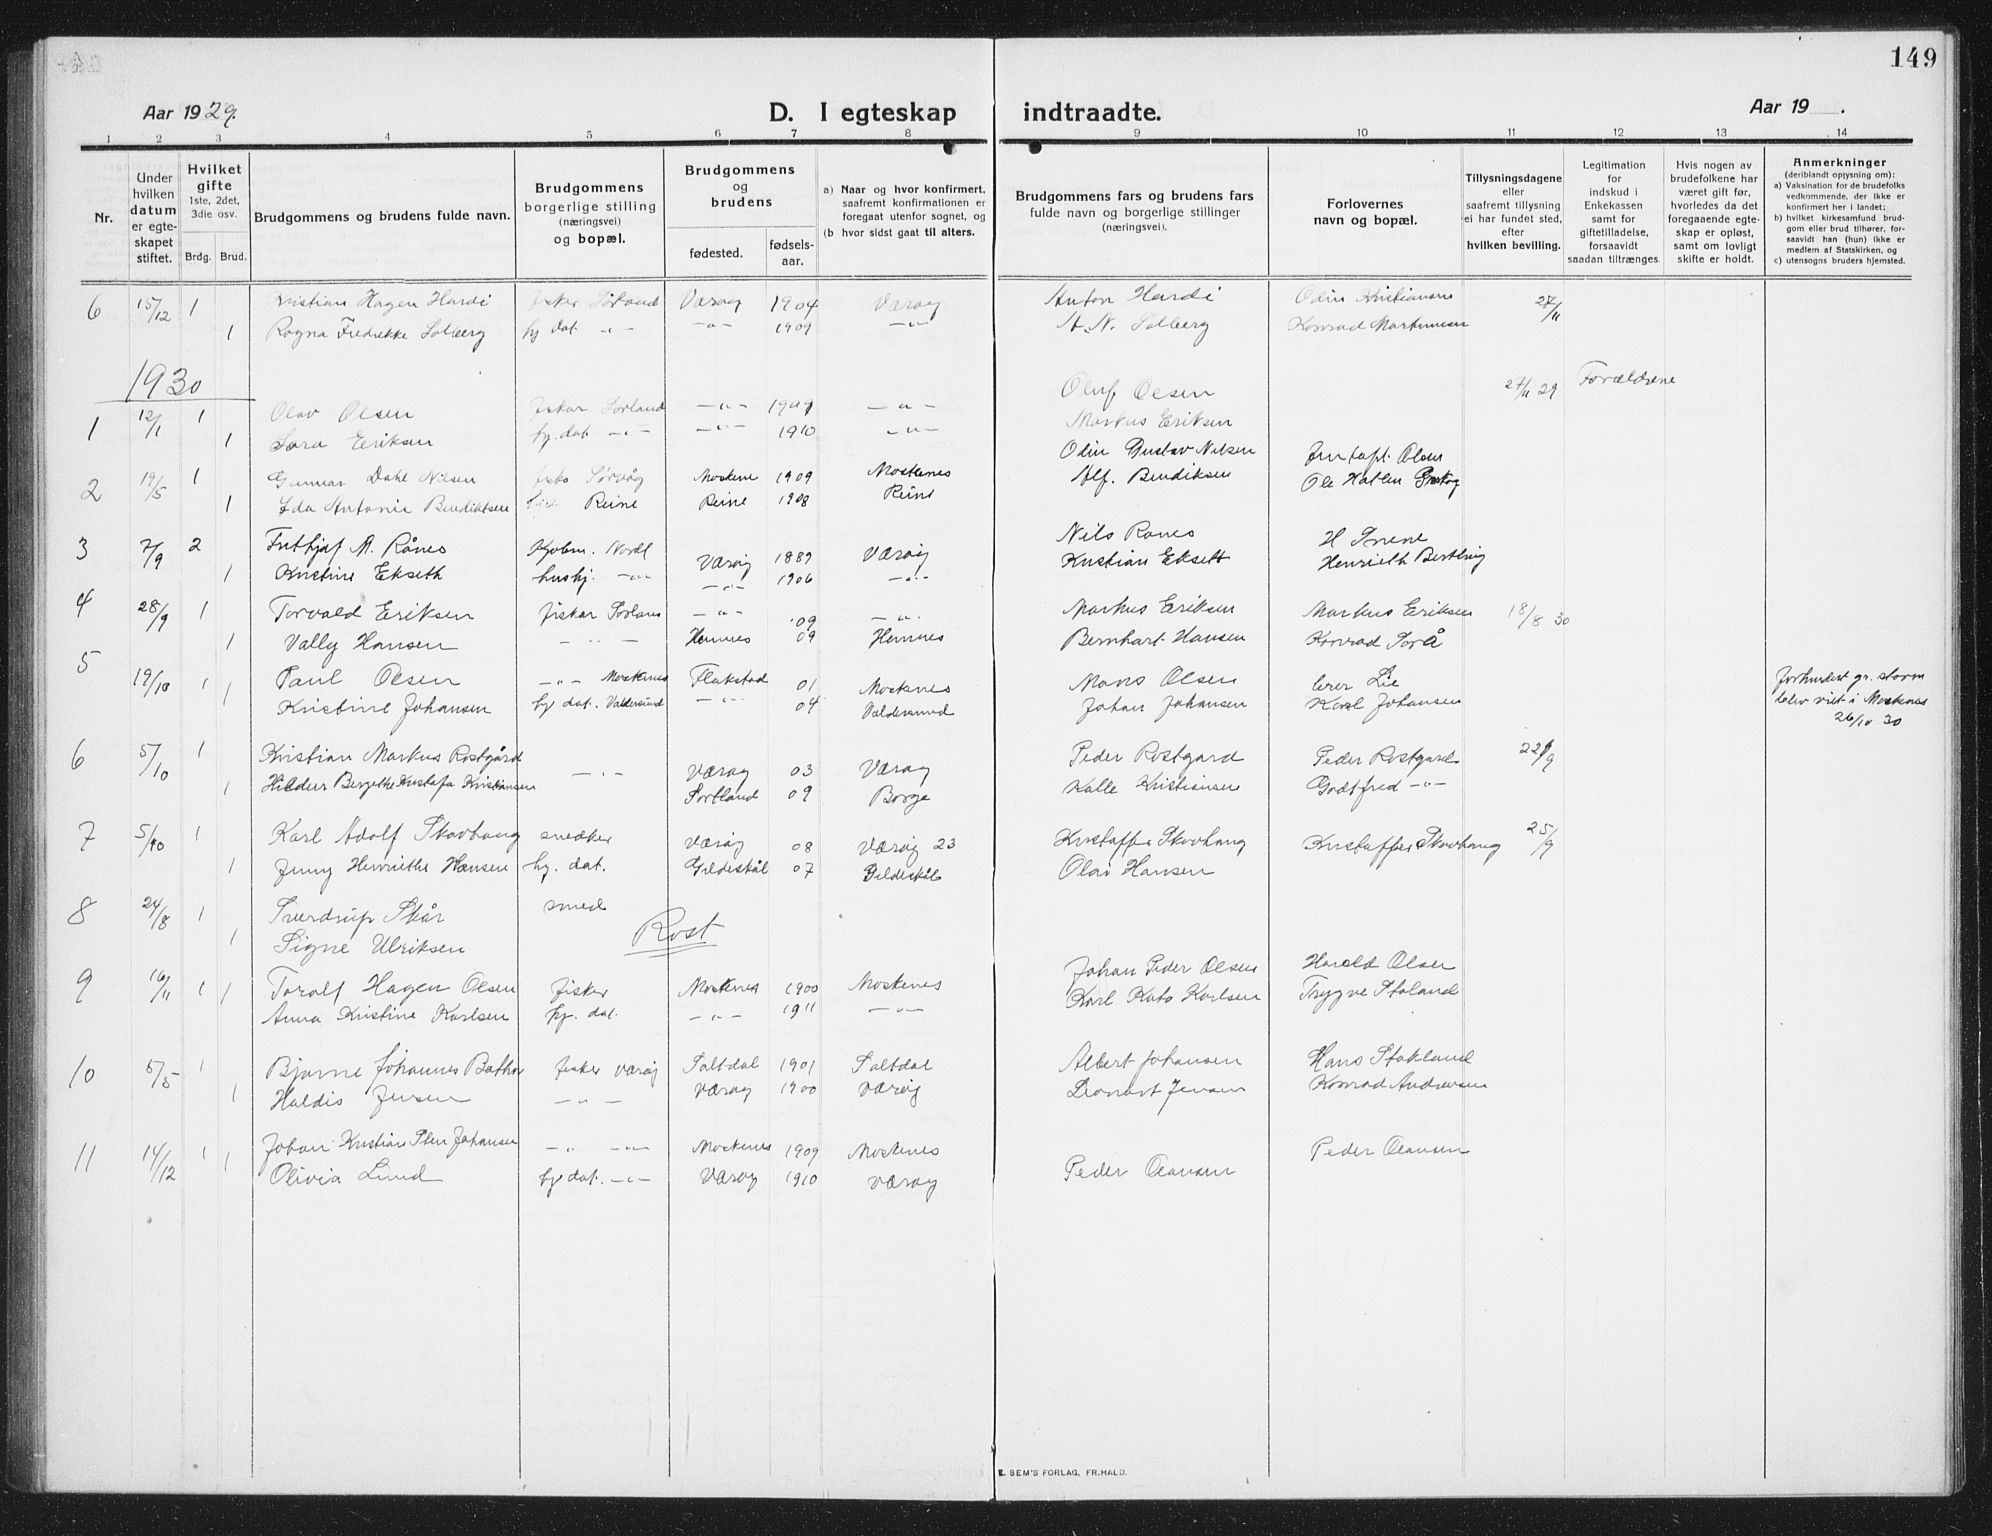 149
Aar 1929.
D. I egteskap indtraadte.
Aar 19 .
1 2 3 4 5 6 7 8 9 10 11 12 13 14
Nr.
Under hvilken datum er egteskapet stiftet.
Hvilket gifte 1ste, 2det, 3die osv.
Brdg. Brud.
Brudgommens og brudens fulde navn.
Brudgommens borgerlige stilling (næringsvei) og bopæl.
Brudgommens og brudens
fødested.
fødsels-aar.
a) Naar og hvor konfirmert, saafremt konfirmationen er foregaat utenfor sognet, og
(b hvor sidst gaat til alters.
Brudgommens fars og brudens fars fulde navn og borgerlige stillinger (næringsvei).
Forlovernes navn og bopæl.
Tillysningsdagene eller saafremt tillysning ei har fundet sted, efter hvilken bevilling.
Legitimation for indskud i Enkekassen samt for giftetilladelse, forsaavidt saadan tiltrænges.
Hvis nogen av brudefolkene har været gift før, hvorledes da det foregaaende egteskap er opløst, samt om lovligt skifte er holdt.
Anmerkninger (deriblandt opjysning om):
a) Vaksination for de brudefolks vedkommende, der ikke er konfirmert her i landet;
b) hvilket kirkesamfund brudgom eller brud tilhører, forsaavidt han (hun) ikke er medlem af Statskirken, og
c) utensogns bruders hjemsted.
6 15/12 1 Kristian Hagen Hardi fisker Sørland Værøy 1904 Værøy Anton Hardi Odin Kristiansen 27/11
1 Ragna Fredrikke Solberg hj dat. -"- -"- 1909 -"- A. N. Solberg Konrad Martinusen
1930
1 12/1 1 Olav Olsen fisker Sørland -"- -"- Oluf Olsen 27/11 29 Forældrene
1 Sara Eriksen hj. dat. -"- -"- 1910 -"- Markus Eriksen
2 19/5 1 Gunnar Dahl Nilsen Sørvåg Moskene 1909 Moskenes Odin Gustav Nilsen Olsen
1 Ida Antonie Bendiktsen Reine Reine 1908 Reine Alf. Bendiksen Ole
3 7/9 2 Fritjof M. Rånes Kjøbm. Nordl Værøy 1889 Værøy Nils Ranes H
1 Kristine Ekseth hushj. -"- -"- 1906 -"- Kristian Eksett Henrieth Berthing
4 28/9 1 Torvald Eriksen fisker Sørland -"- 09 -"- Markus Eriksen Markus Eriksen 18/8 30
1 Vally Hansen -"- Hemnes 09 Hemnes Bernhart Hansen Konrad Sørå
5 19/10 1 1 Paul Olsen -"- Moskenes Flakstad 01 Moskenes Mons Olsen lærer Lie forhindret gr. storm
Kristine Johansen hj dat. Valdersund -"- 04 Valdersund Johan Johansen Karl Johansen blev viet i Moskenes
26/10 30
6 5/10 1 Kristian Markus Rostgård -"- Værøy 03 Værøy Peder Rostgard Peder Rostgard 22/9
1 Hildur Bergithe Kristiansen Sortland 09 Borge Kalle Kristiansen Godtfred -"-
7 5/10 1 Karl Adolf Skovhaug snedker Værøy 08 Værøy 23 Kristoffer Skovhaug Kristoffer Skovhaug 25/9
1 Jenny Henriette Hansen hj. dat. Gildeskål 07 Gildeskål Olai Hansen
8 24/8 1 Sverdrup Skår smed
1 Signe Ulriksen Rost
9 16/11 1 1 Toralf Hagen Olsen fisker Moskenes 1900 Moskenes Johan Peder Olsen Harald Olsen
Anna Kristine Karlsen hj. dat. -"- 1911 -"- Karl Kato Karlsen Trygve Støland
10 5/5 1 Bjarne Johannes fisker Værøy Saltdal 1901 Saltdal Albert Johansen Hans Stokland
1 Haldis Jensen -"- Værøy 1900 Værøy Leonart Jensen Konrad Andersen
11 14/12 1 1 Johan Kristian Johansen -"- -"- Moskenes 1909 Moskenes Peder Olausen
Olivia Lund hj dat. -"- Værøy 1910 Værøy Peder Olausen
E. SEM'S FORLAG, FR.HALD.